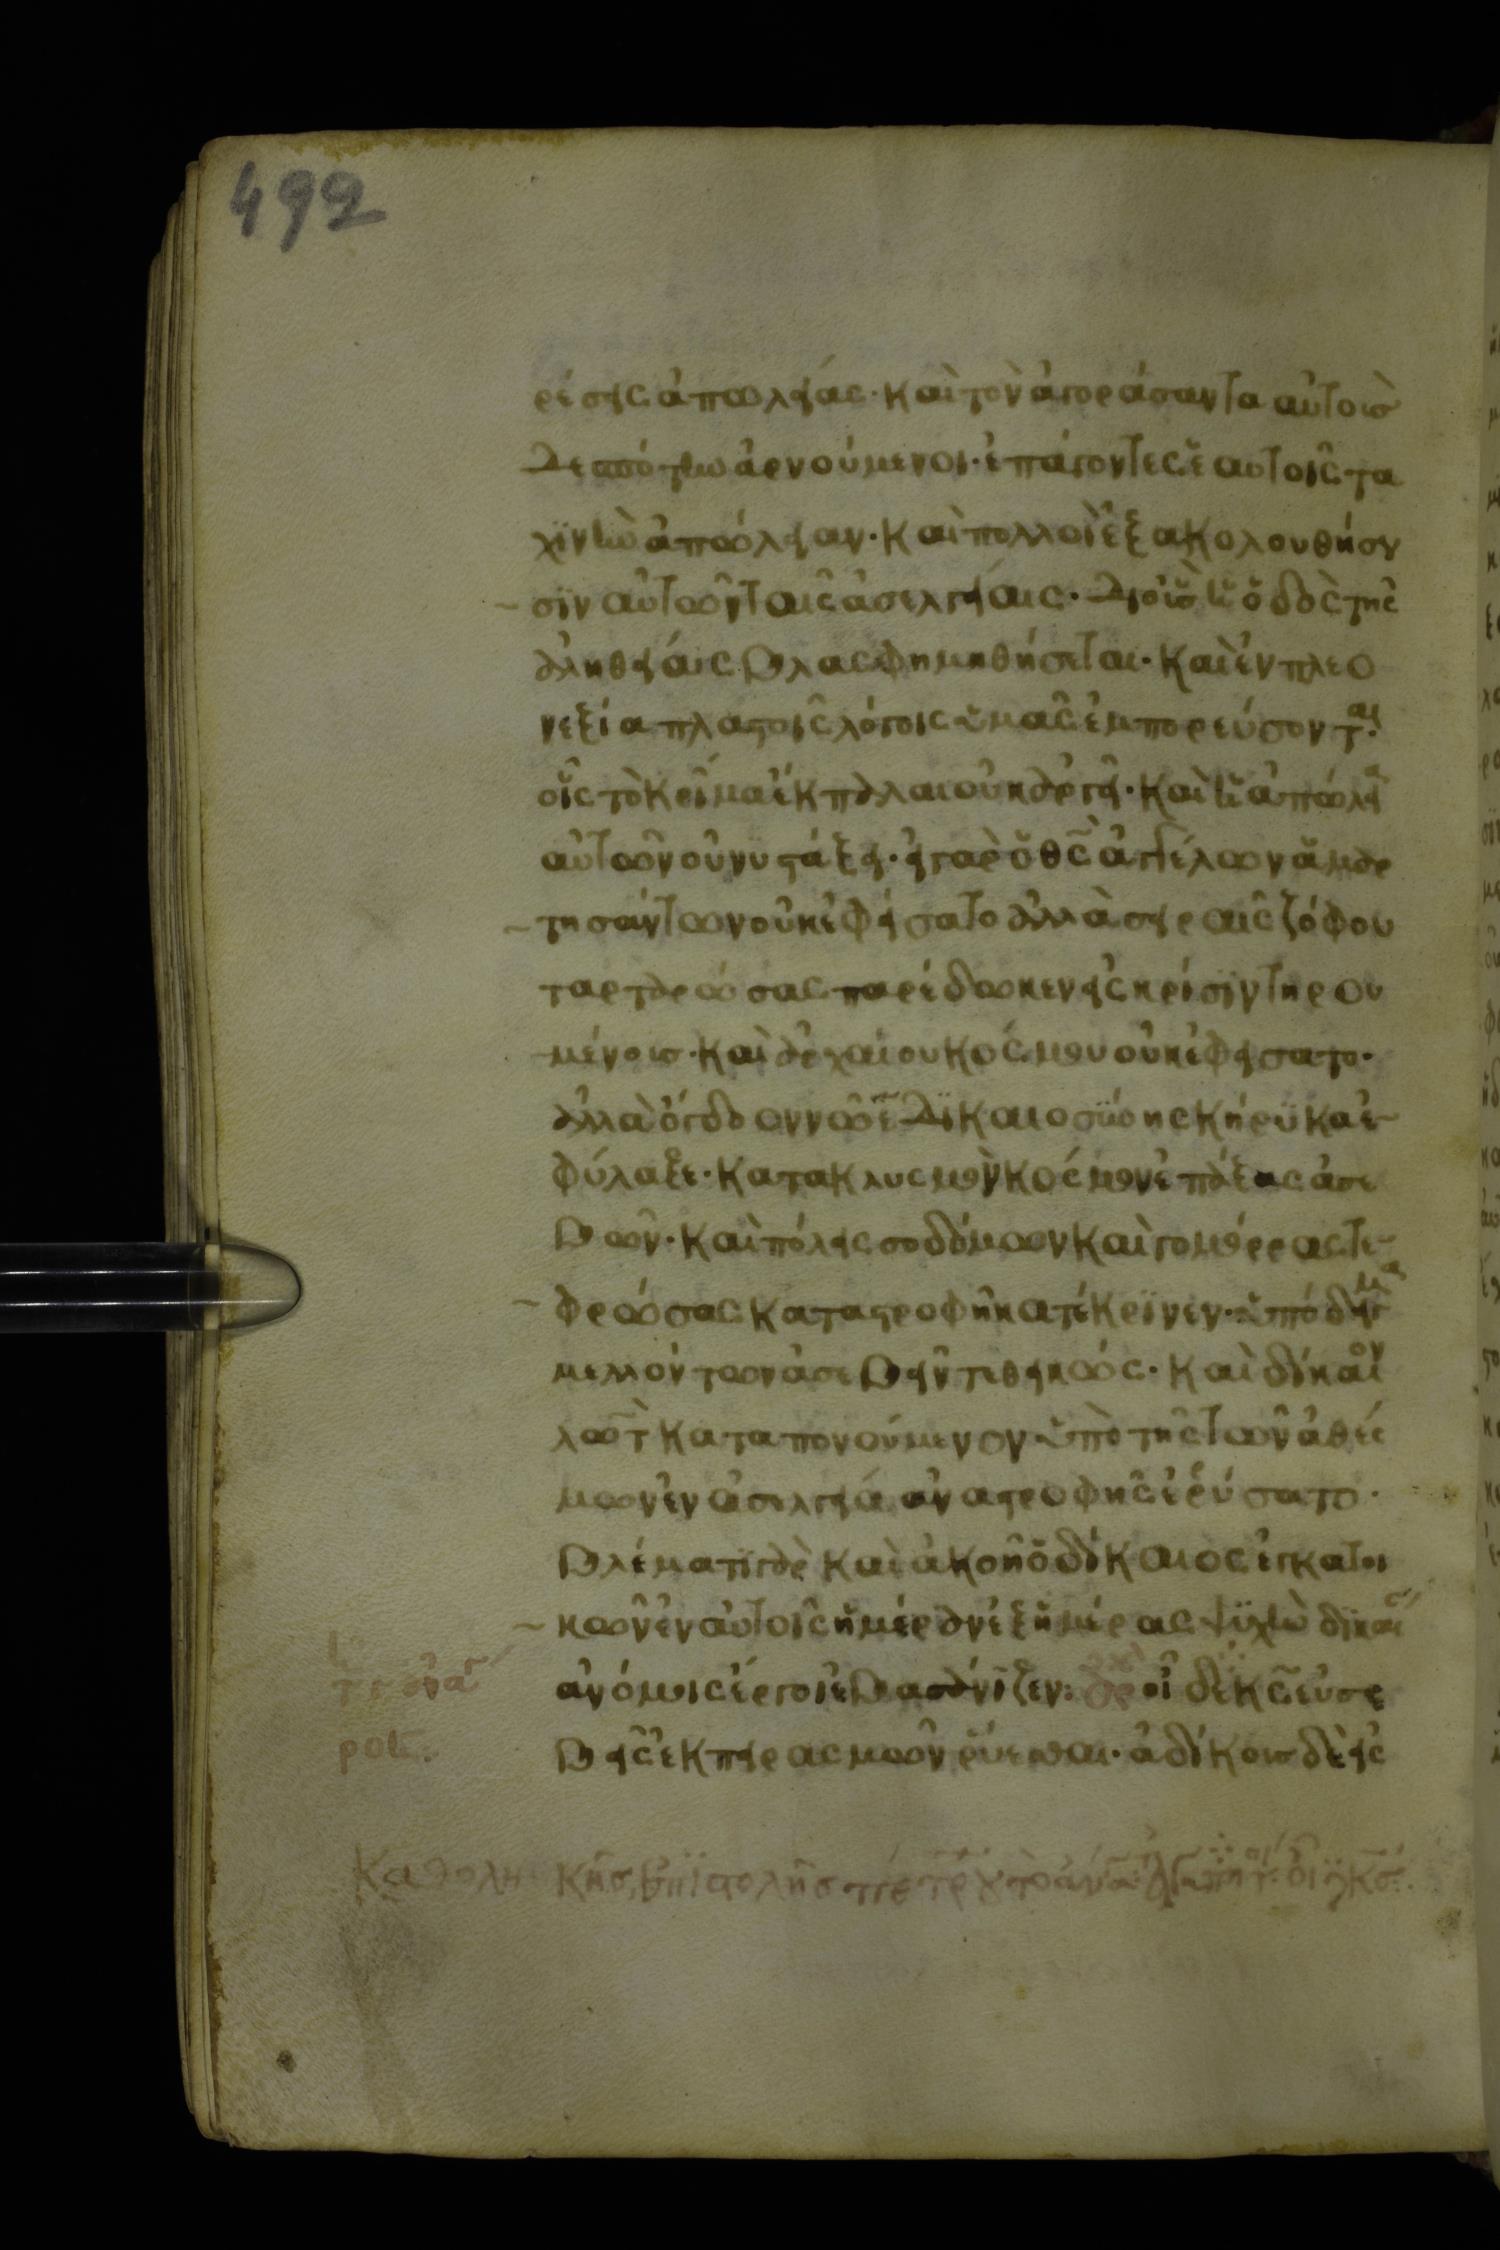 492
ρέσεις ἀπωλείας· καὶ τὸν ἀγοράσαντα αὐτοὺσ
δεσπότην ἀρνούμενοι· ἐπάγοντες ἑαυτοῖς τα
χϊνὴν ἀπώλειαν· καὶ πολλοὶ ἐξακολουθήσου
σϊν αὐτῶν ταῖς ἀσελγείαις· δι οὓσ ἡ ὁδὸς τῆς
ἀληθείας βλασφημηθήσεται· καὶ ἐν πλεο
νεξία πλαστοῖς λόγοις ὑμᾶς ἐμπορεύσονται·
οἷς τὸ κρῖμα ἔκπαλαι οὐκ ἀργεῖ· καὶ ἡ ἀπώλεια
αὐτῶν οὐ νυστάξει· εἰ γὰρ ὁ θ̅ς̅ ἀγγέλων ἁμαρ
τησάντων οὐκ ἐφείσατο ἀλλὰ σειραῖς ζόφου
ταρταρώσας παρέδωκεν εἰς κρίσϊν τηρου
μένουσ· καὶ ἀρχαίου κόσμου οὐκ ἐφείσατο·
ἀλλὰ ὄγδοον νῶε δϊκαιοσύνης κήρϋκα ἐ
φύλαξε· κατακλυσμὸν κόσμον ἐπάξας ἀσε
βῶν· καὶ πόλεις σοδόμων καὶ γομόρρας τε
φρώσας καταστροφῆ κατέκρϊνεν· ὑπόδειγμα
μελλόντων ἀσεβεῖν τεθεικώς· καὶ δίκαιον
λὼτ καταπονούμενον ὑπὸ τῆς τῶν ἀθέσ
μων ἐν ἀσελγεία ἀναστροφῆς ἐρρύσατο·
βλέματϊ γὰρ καὶ ἀκοῆ ὁ δίκαιος ἐγκατοι
κῶν ἐν αὐτοῖς ἡμέραν ἐξ ἡμέρας ψϋχὴν δϊκαίαν
ἀνόμοις ἔργοις ἐβασάνϊζεν: ἀρχὴ οἶδε κ̅ς̅ εὐσε
βεῖς ἐκ πειρασμῶν ῥύεσθαι· ἀδίκους δὲ εἰς